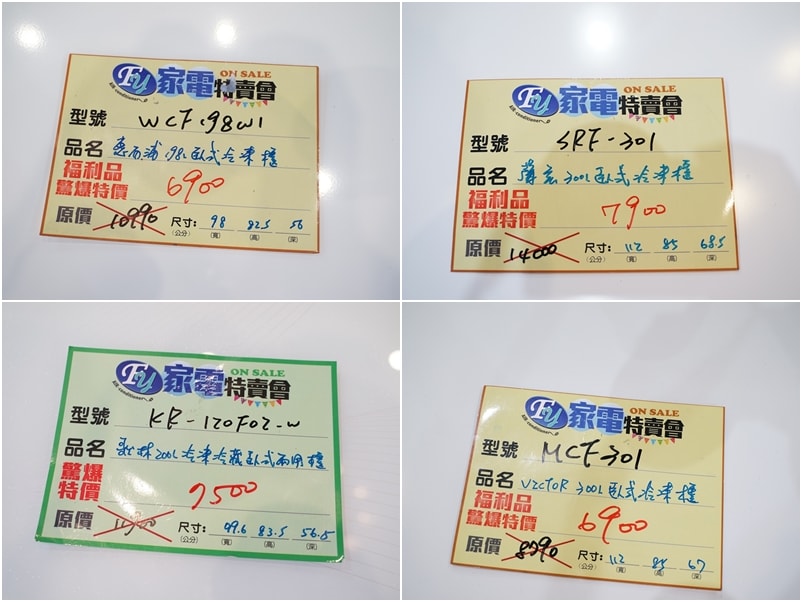 FU 家電特賣會 ON SALE
型號 WCF198W1
品名 惠而浦 198L 臥式冷凍櫃
福利品
驚爆特價 6900
原價 10990 尺寸: 98 82.5 56
(公分) (寬) (高) (深)
FU 家電特賣會 ON SALE
型號 SRF-301
品名 300L臥式冷凍櫃
福利品
驚爆特價 7900
原價 14000 尺寸: 112 85 68.5
(公分) (寬) (高) (深)
FU 家電特賣會 ON SALE
型號 KR-120F02-W
品名 歌林200L冷凍冷藏臥式兩用櫃
驚爆
特價 7500
原價 尺寸: 99.6 83.5 56.5
(公分) (寬) (高) (深)
FU 家電特賣會 ON SALE
型號 MCF301
品名 VICTOR 300L臥式冷凍櫃
福利品
驚爆特價 6900
原價 8790 尺寸: 112 85 67
(公分) (寬) (高) (深)